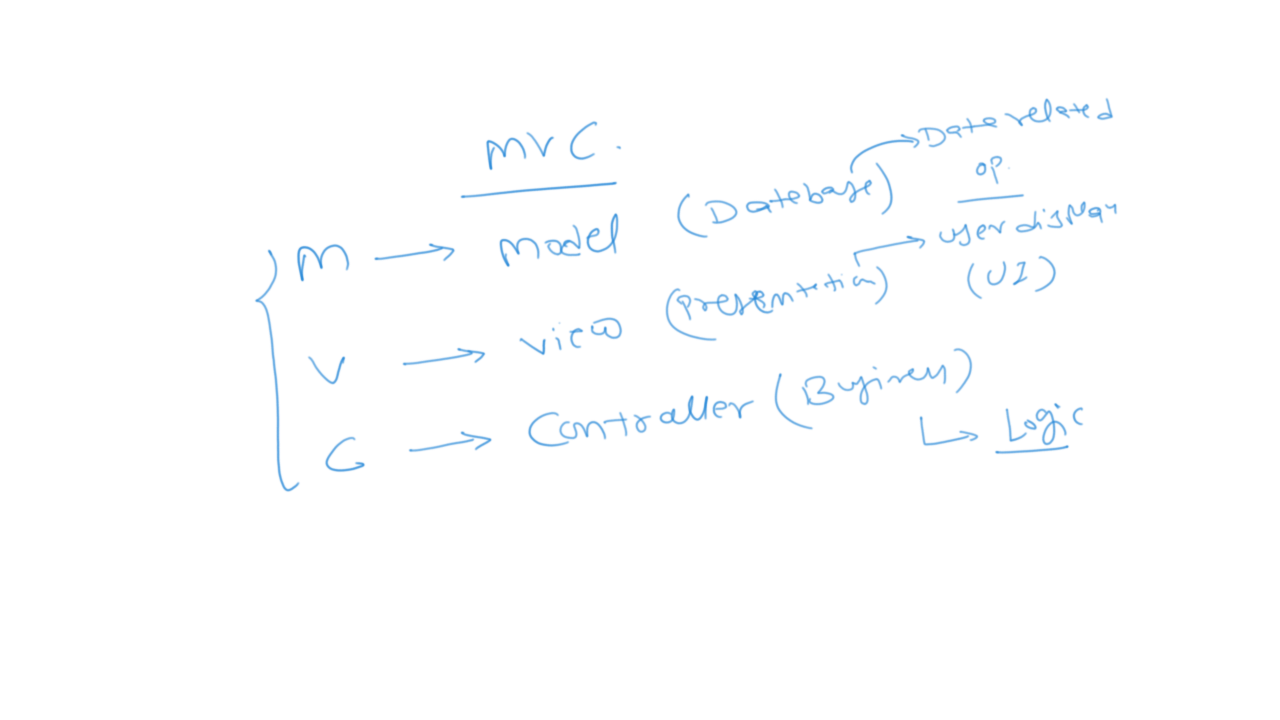 MVC.
M → Model (Database) → Data related
op.
V → View (Presentation) → user display
(UI)
C → Controller (Business)
↳ Logic